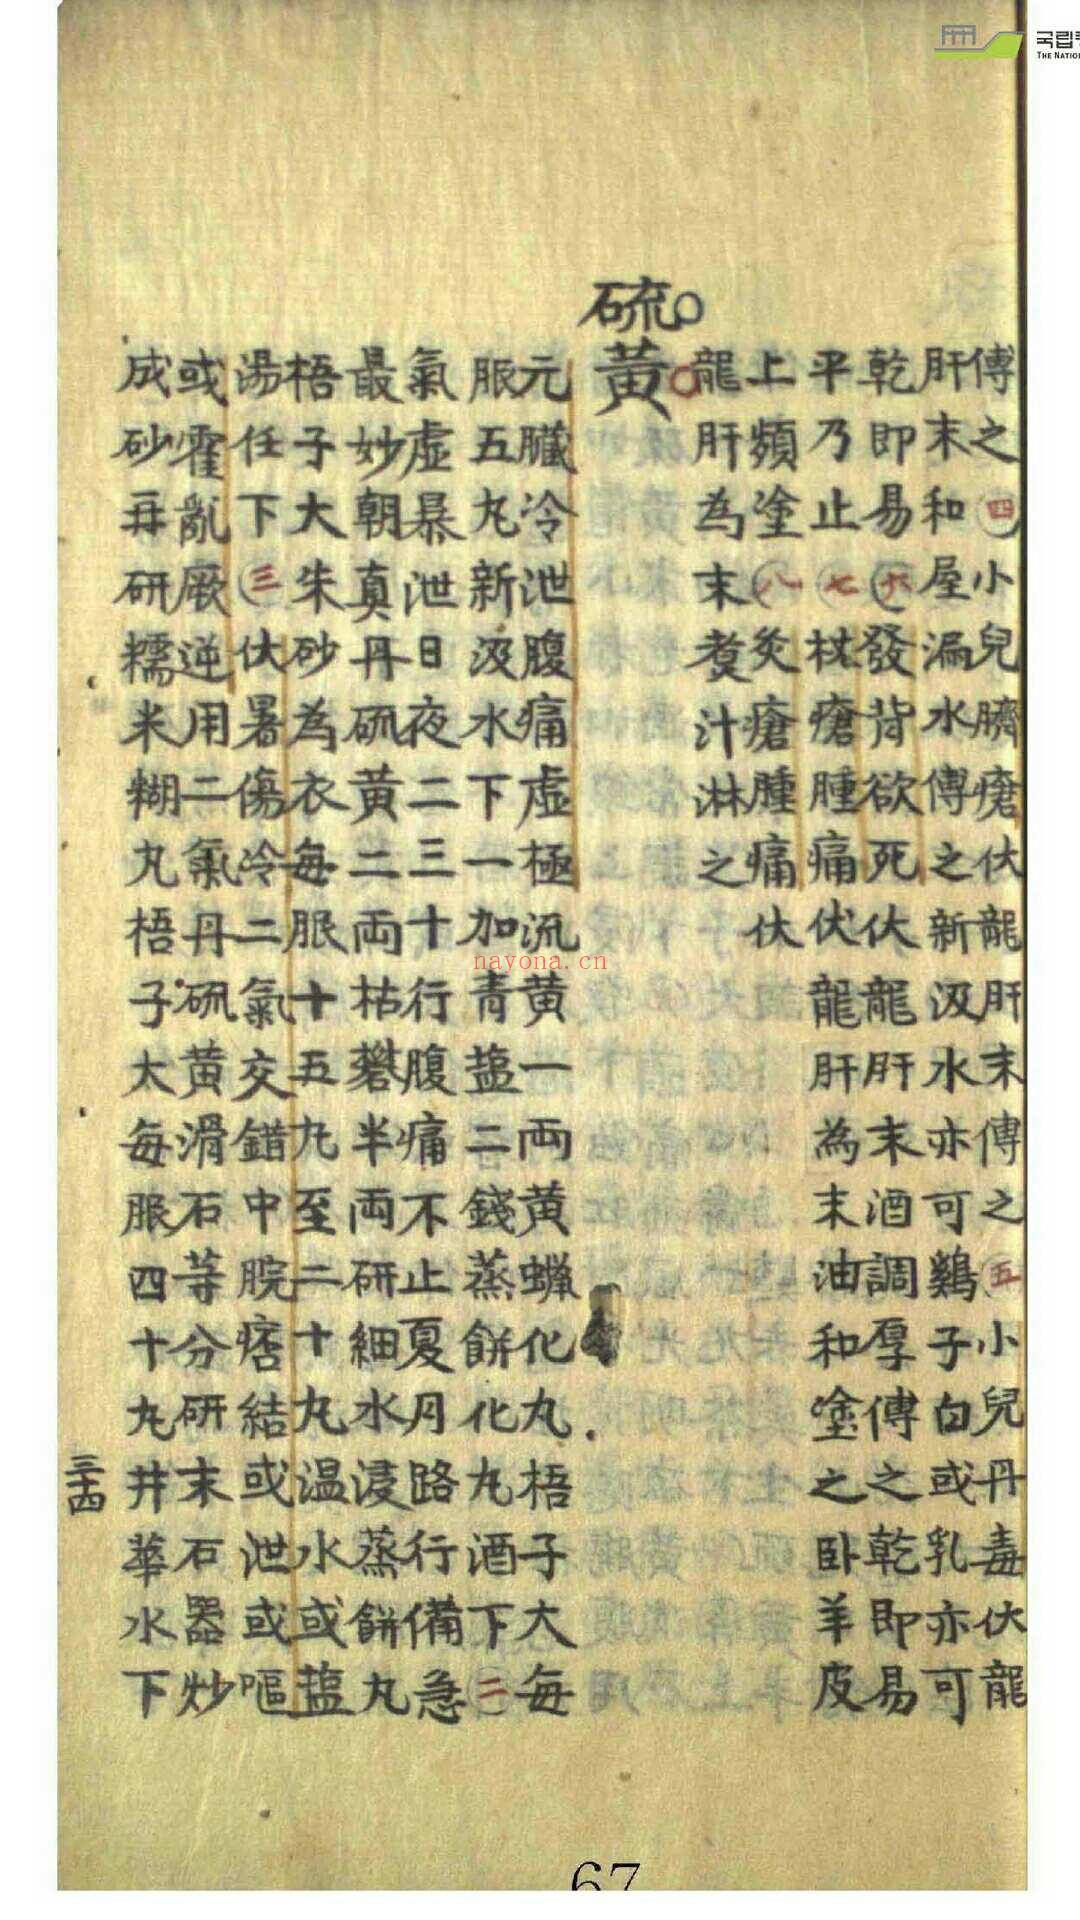 국립
THE NATION
傅之㊃小兒臍瘡伏龍肝末傅之㊄小兒丹毒伏龍
肝末和屋漏水傅之新汲水亦可鷄子白或乳亦可
乾即易㊅發背欲死伏龍肝末酒調厚傅之乾即易
平乃止㊆杖瘡腫痛伏龍肝為末油和塗之臥羊皮
上頻塗㊇灸瘡腫痛伏
龍肝為末煑汁淋之
硫黃
元臟冷泄腹痛虛極流黃一兩黃蠟化丸梧子大每
服五丸新汲水下一加青盐二錢蒸餅化丸酒下㊁
氣虛暴泄日夜二三十行腹痛不止夏月路行備急
最妙朝真丹硫黃二兩枯礬半兩研細水浸蒸餅丸
梧子大朱砂為衣每服十五丸至二十丸温水或盐
湯任下㊂伏暑傷冷二氣交錯中脘痞結或泄或嘔
或霍亂厥逆用二氣丹硫黃滑石等分研末石器炒
成砂再研糯米糊丸梧子大每服四十丸井華水下
三十四
67
nayona.cn